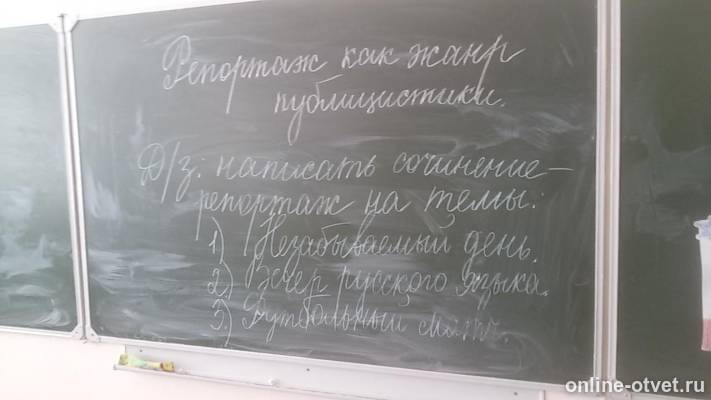 Репортаж как жанр
публицистики.
Д/з: написать сочинение-
репортаж на темы:
1) Незабываемый день.
2) Вечер русского языка.
3) Футбольный матч.
online-otvet.ru